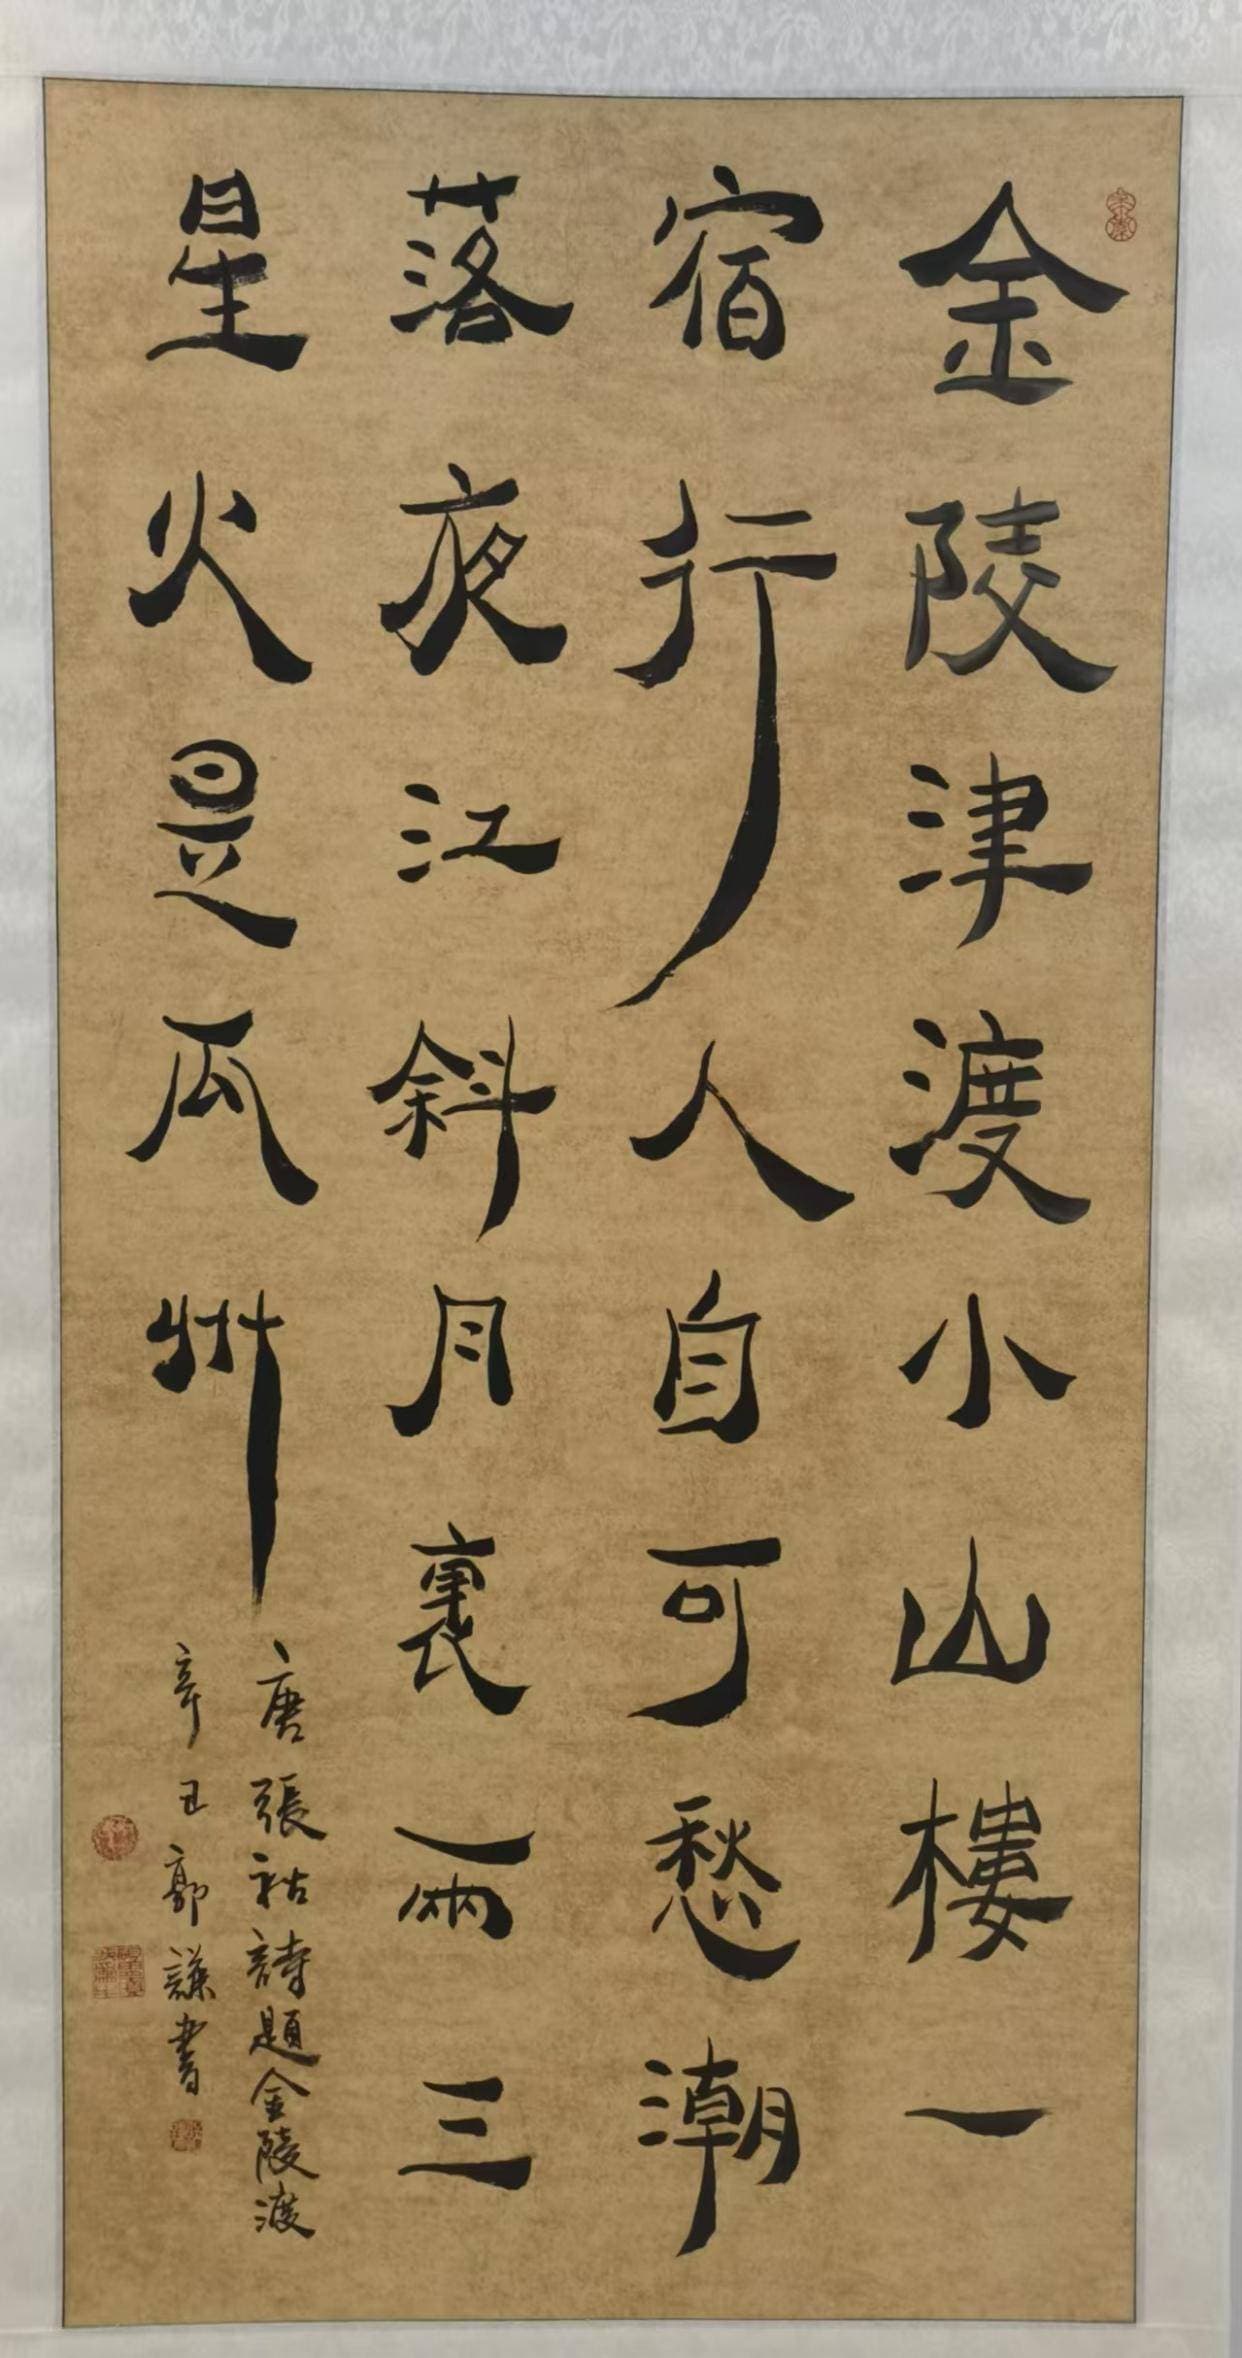 金陵津渡小山樓一
宿行人自可愁潮
落夜江斜月裏兩三
星火是瓜州
唐張祜詩題金陵渡
辛丑郭謙書